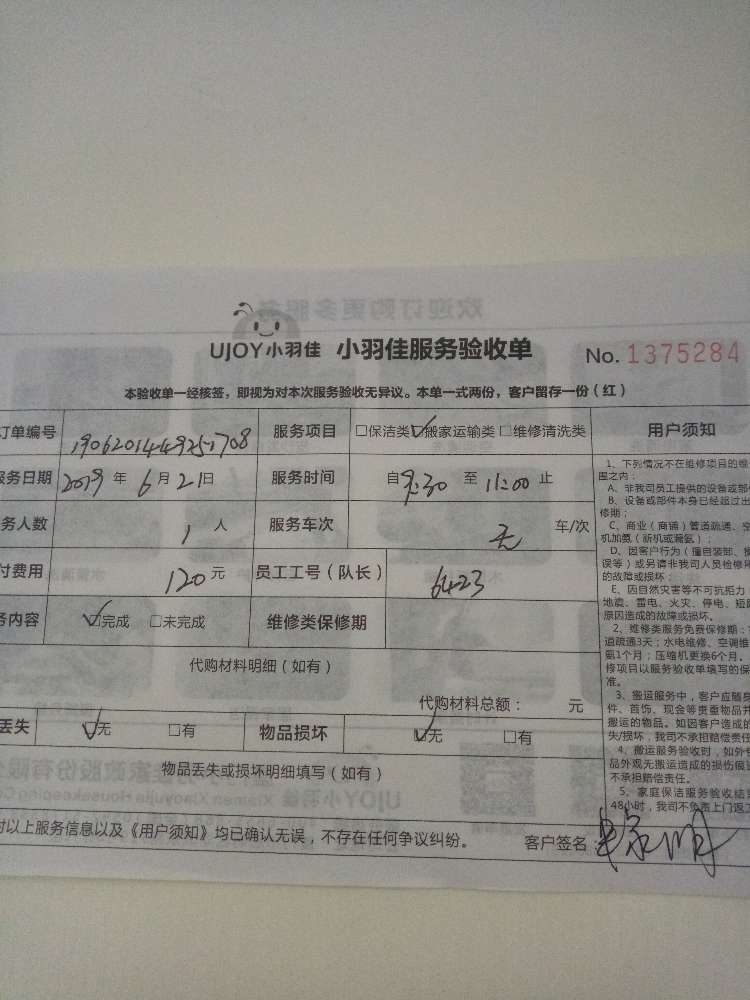 UJOY小羽佳 小羽佳服务验收单 No. 1375284
本验收单一经核签，即视为对本次服务验收无异议。本单一式两份，客户留存一份（红）
订单编号 190620144925-1708 服务项目 □保洁类 ☑搬家运输类 □维修清洗类
服务日期 2019 年 6 月 21 日 服务时间 自 9:30 至 11:00 止
务人数 1 人 服务车次 无 车/次
付费用 120 元 员工工号（队长） 6423
务内容 ☑完成 □未完成 维修类保修期
代购材料明细（如有）
代购材料总额： 元
丢失 ☑无 □有 物品损坏 ☑无 □有
物品丢失或损坏明细填写（如有）
对以上服务信息以及《用户须知》均已确认无误，不存在任何争议纠纷。 客户签名：
用户须知
1、下列情况不在维修项目的维
围之内：
A、非我司员工提供的设备或部件
B、设备或部件本身已经超过出
修期；
C、商业（商铺）管道疏通、空
机加氨（新机或漏氨）；
D、因客户行为（擅自装卸、操
误等）或另请非我司人员检修所
的故障或损坏；
E、因自然灾害等不可抗拒力
地震、雷电、火灾、停电、短路
原因造成的故障或损坏。
2、维修类服务免费保修期：
道疏通3天；水电维修、空调维
氨1个月；压缩机更换6个月。
修项目以服务验收单填写的保
准。
3、搬运服务中，客户应随身
件、首饰、现金等贵重物品并
搬运的物品。如因客户造成的
失/损坏，我司不承担赔偿责任
4、搬运服务验收时，如外包
品外观无搬运造成的损伤痕迹
不承担赔偿责任。
5、家庭保洁服务验收结束
48小时，我司不负责上门返工